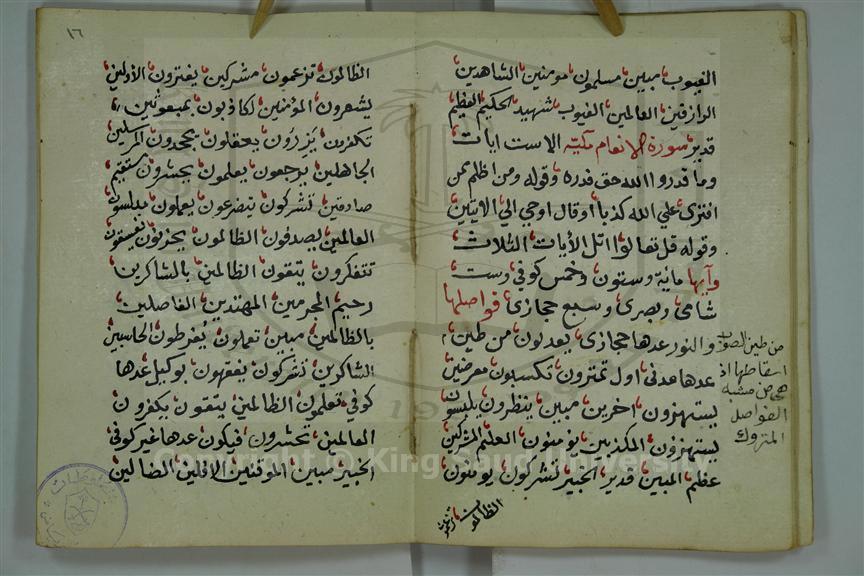 الغيوب مبين مسلمون مومنين الشاهدين
الرازقين العالمين الغيوب شهيد الحكيم العظيم
قدير سورة الانعام مكية الا ست ايات
وما قدروا الله حق قدره وقوله ومن اظلم ممن
افترى علي الله كذبا او قال اوحي الي الايتين
وقوله قل تعالوا اتل الأيات الثلاث
وآيها مائة وستون وخمس كوفي وست
شامي وبصري وسبع حجازي فواصلها
والنور عدها حجازي يعدلون من طين
عدها مدني اول تمترون تكسبون معرضين
يستهزون اخرين مبين ينظرون يلبسون
يستهزون المكذبين يؤمنون العليم المشركين
عظيم المبين قدير الخبير تشركون يومنون
الظالمون تزعمون
من طين الصوب
اسقاطها اذ
هي من مشبه
الفواصل
المتروك
١٦
الظالمون تزعمون مشركين يفترون الأولين
يشعرون المؤمنين لكاذبون بمبعوثين
تكفرون يزرون يعقلون يجحدون المرسلين
الجاهلين يرجعون يعلمون يحشرون مستقيم
صادقين تشركون يتضرعون يعملون مبلسون
العالمين يصدفون الظالمون يحزنون يفسقون
تتفكرون يتقون الظالمين بالشاكرين
رحيم المجرمين المهتدين الفاصلين
بالظالمين مبين تعملون يفرطون الحاسبين
الشاكرين تشركون يفقهون بوكيل عدها
كوفي تعلمون الظالمين يتقون يكفرون
العالمين تحشرون فيكون عدها غير كوفي
الخبير مبين الموقنين الافلين الضالين
Copyright © King Saud University